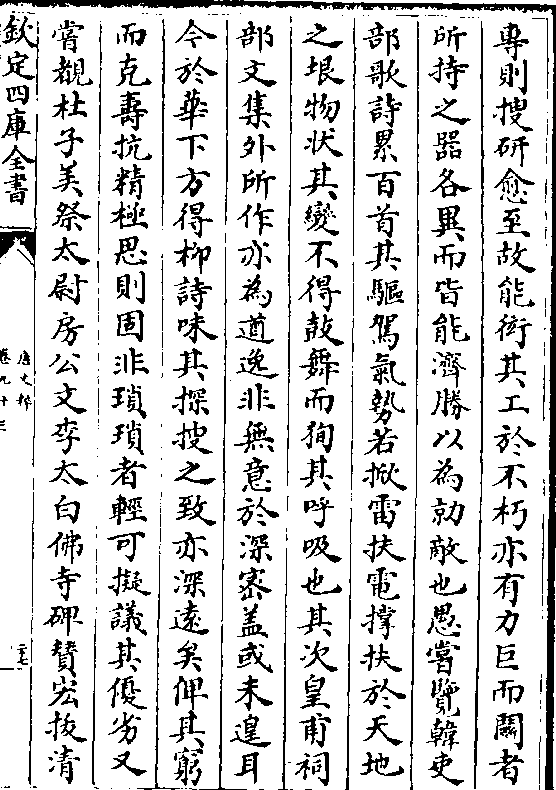 專則搜研愈至故能衒其工於不朽亦有力巨而鬭者
所持之器各異而皆能濟勝以為勍敵也愚嘗覽韓吏
部歌詩累百首其驅駕氣勢若掀雷扶電撐扶於天地
之垠物狀其變不得鼓舞而狥其呼吸也其次皇甫祠
部文集外所作亦為遒逸非無意於深密盖或未遑耳
今於華下方得柳詩味其探搜之致亦深逺矣俾其窮
而克壽抗精極思則固非瑣瑣者輕可擬議其優劣又
嘗覩杜子美祭太尉房公文李太白佛寺碑賛宏抜清
欽定四庫全書
唐文粹
卷九十三
二七